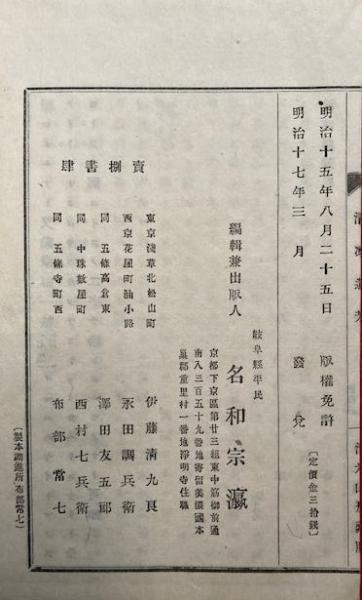 明治十五年八月二十五日 版權免許
明治十七年三月 發兌
〔定價金三拾錢〕
岐阜縣平民
編輯兼出版人 名和宗瀛
京都下京區第廿三組東中筋御前通
南入三百五十九番地寄留美濃國本
巢郡重里村一番地淨明寺住職
賣捌書肆
東京淺草北松山町 伊藤清九良
西京花屋町油小路 永田調兵衛
同 五條高倉東 澤田友五郎
同 中珠數屋町 西村七兵衛
同 五條寺町西 布部常七
〔製本調進所布部常七〕